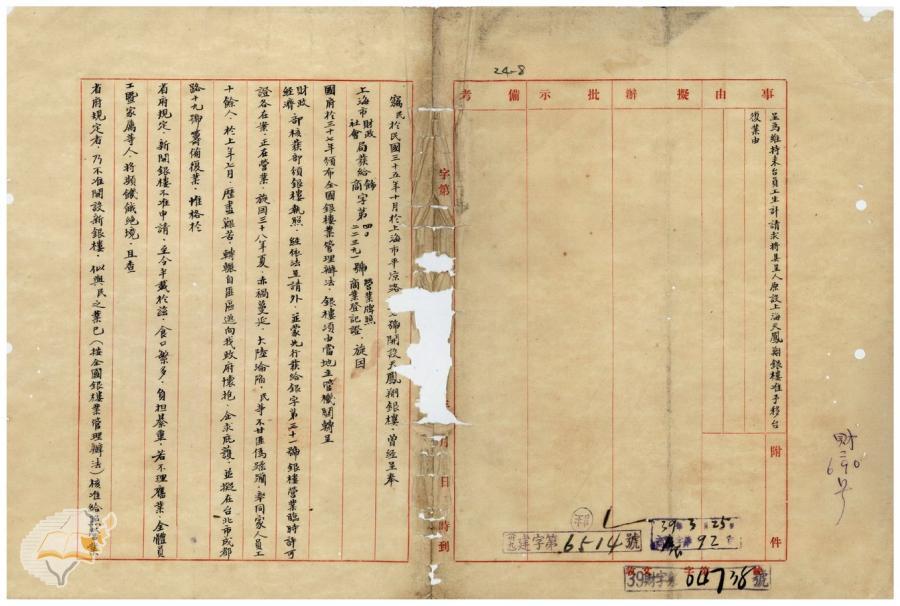 24-8
事由
擬辦
批示
備考
呈為維持來台員工生計請求將具呈人原設上海天鳳翔銀樓准予移台
復業由
附
件
財
二
690
号
39 3 25
92
建字第6514號
39財字第04738號
字第
月
日
時到
竊民於民國三十五年十月於上海市平凉路 七號開設天鳳翔銀樓,曾經呈奉
上海市財政社會局發給飾商字第四口二二三九一號營業牌照商業登記證,旋因
國府於三十七年頒布全國銀樓業管理辦法,銀樓須由當地主管機關轉呈
財政經濟部核發部頒銀樓執照,經依法呈請外,並蒙先行發給銀字第三十一號銀樓營業臨時許可
證各在案,正在營業,旋因三十八年夏,赤禍蔓延,大陸淪陷,民等不甘匪偽蹂躪,率同家人員工
十餘人,於上年七月,歷盡艱苦,轉輾自匪區進向我政府懷抱,企求庇護,並擬在台北市成都
路十九號籌備復業,惟格於
省府規定,新開銀樓不准申請,至今半載於茲,食口繁多,負担綦重,若不理舊業,全體員
工暨家屬等人,將瀕饑餓絕境,且查
省府規定者,乃不准開設新銀樓,似與民之業已(按全國銀樓業管理辦法)核准給照營業